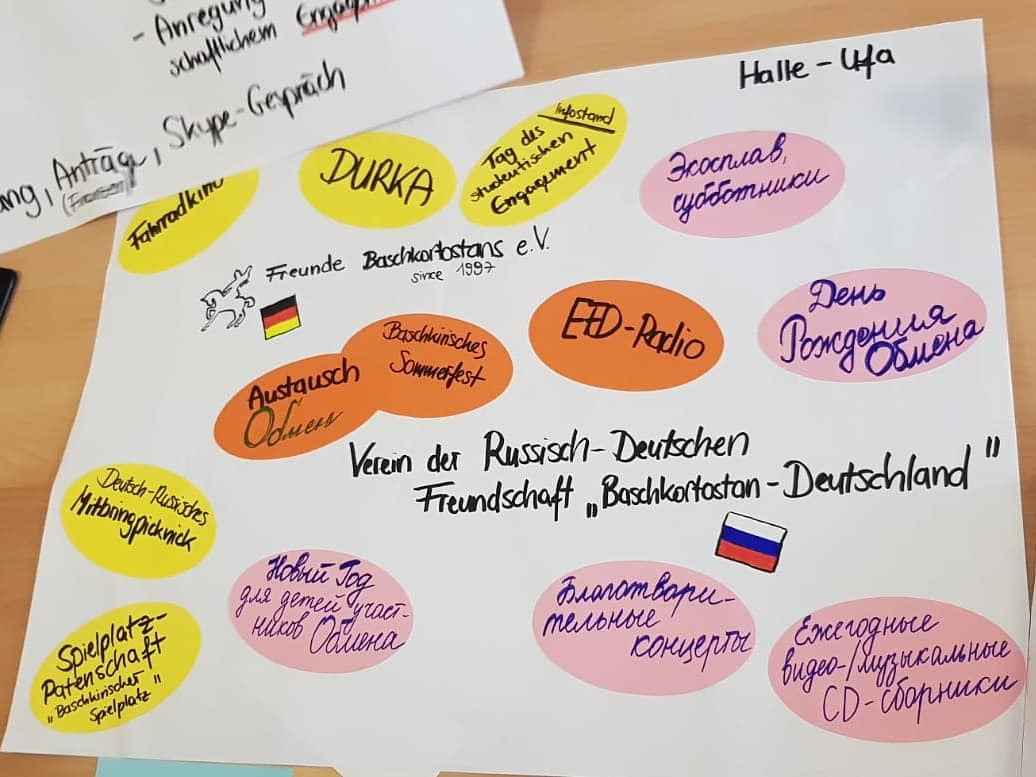 - Anregung
schaftlichem
ang, Anträge, Skype-Gespräch
(Finanzen)
Halle - Ufa
Fahrradkino
DURKA
Infostand
Tag des
studentischen
Engagement
Экосплав,
субботники
Freunde Baschkortostans e.V.
since 1997
Austausch
Обмен
Baschkirisches
Sommerfest
EFD-Radio
День
Рождения
Обмена
Verein der Russisch-Deutschen
Freundschaft „Baschkortostan-Deutschland"
Deutsch-Russisches
Mitbringpicknick
Новый Год
для детей участ-
ников Обмена
Благотвари-
тельные
концерты
Ежегодные
видео-/музыкальные
CD-сборники
Spielplatz-
Patenschaft
„Baschkirischer
Spielplatz"